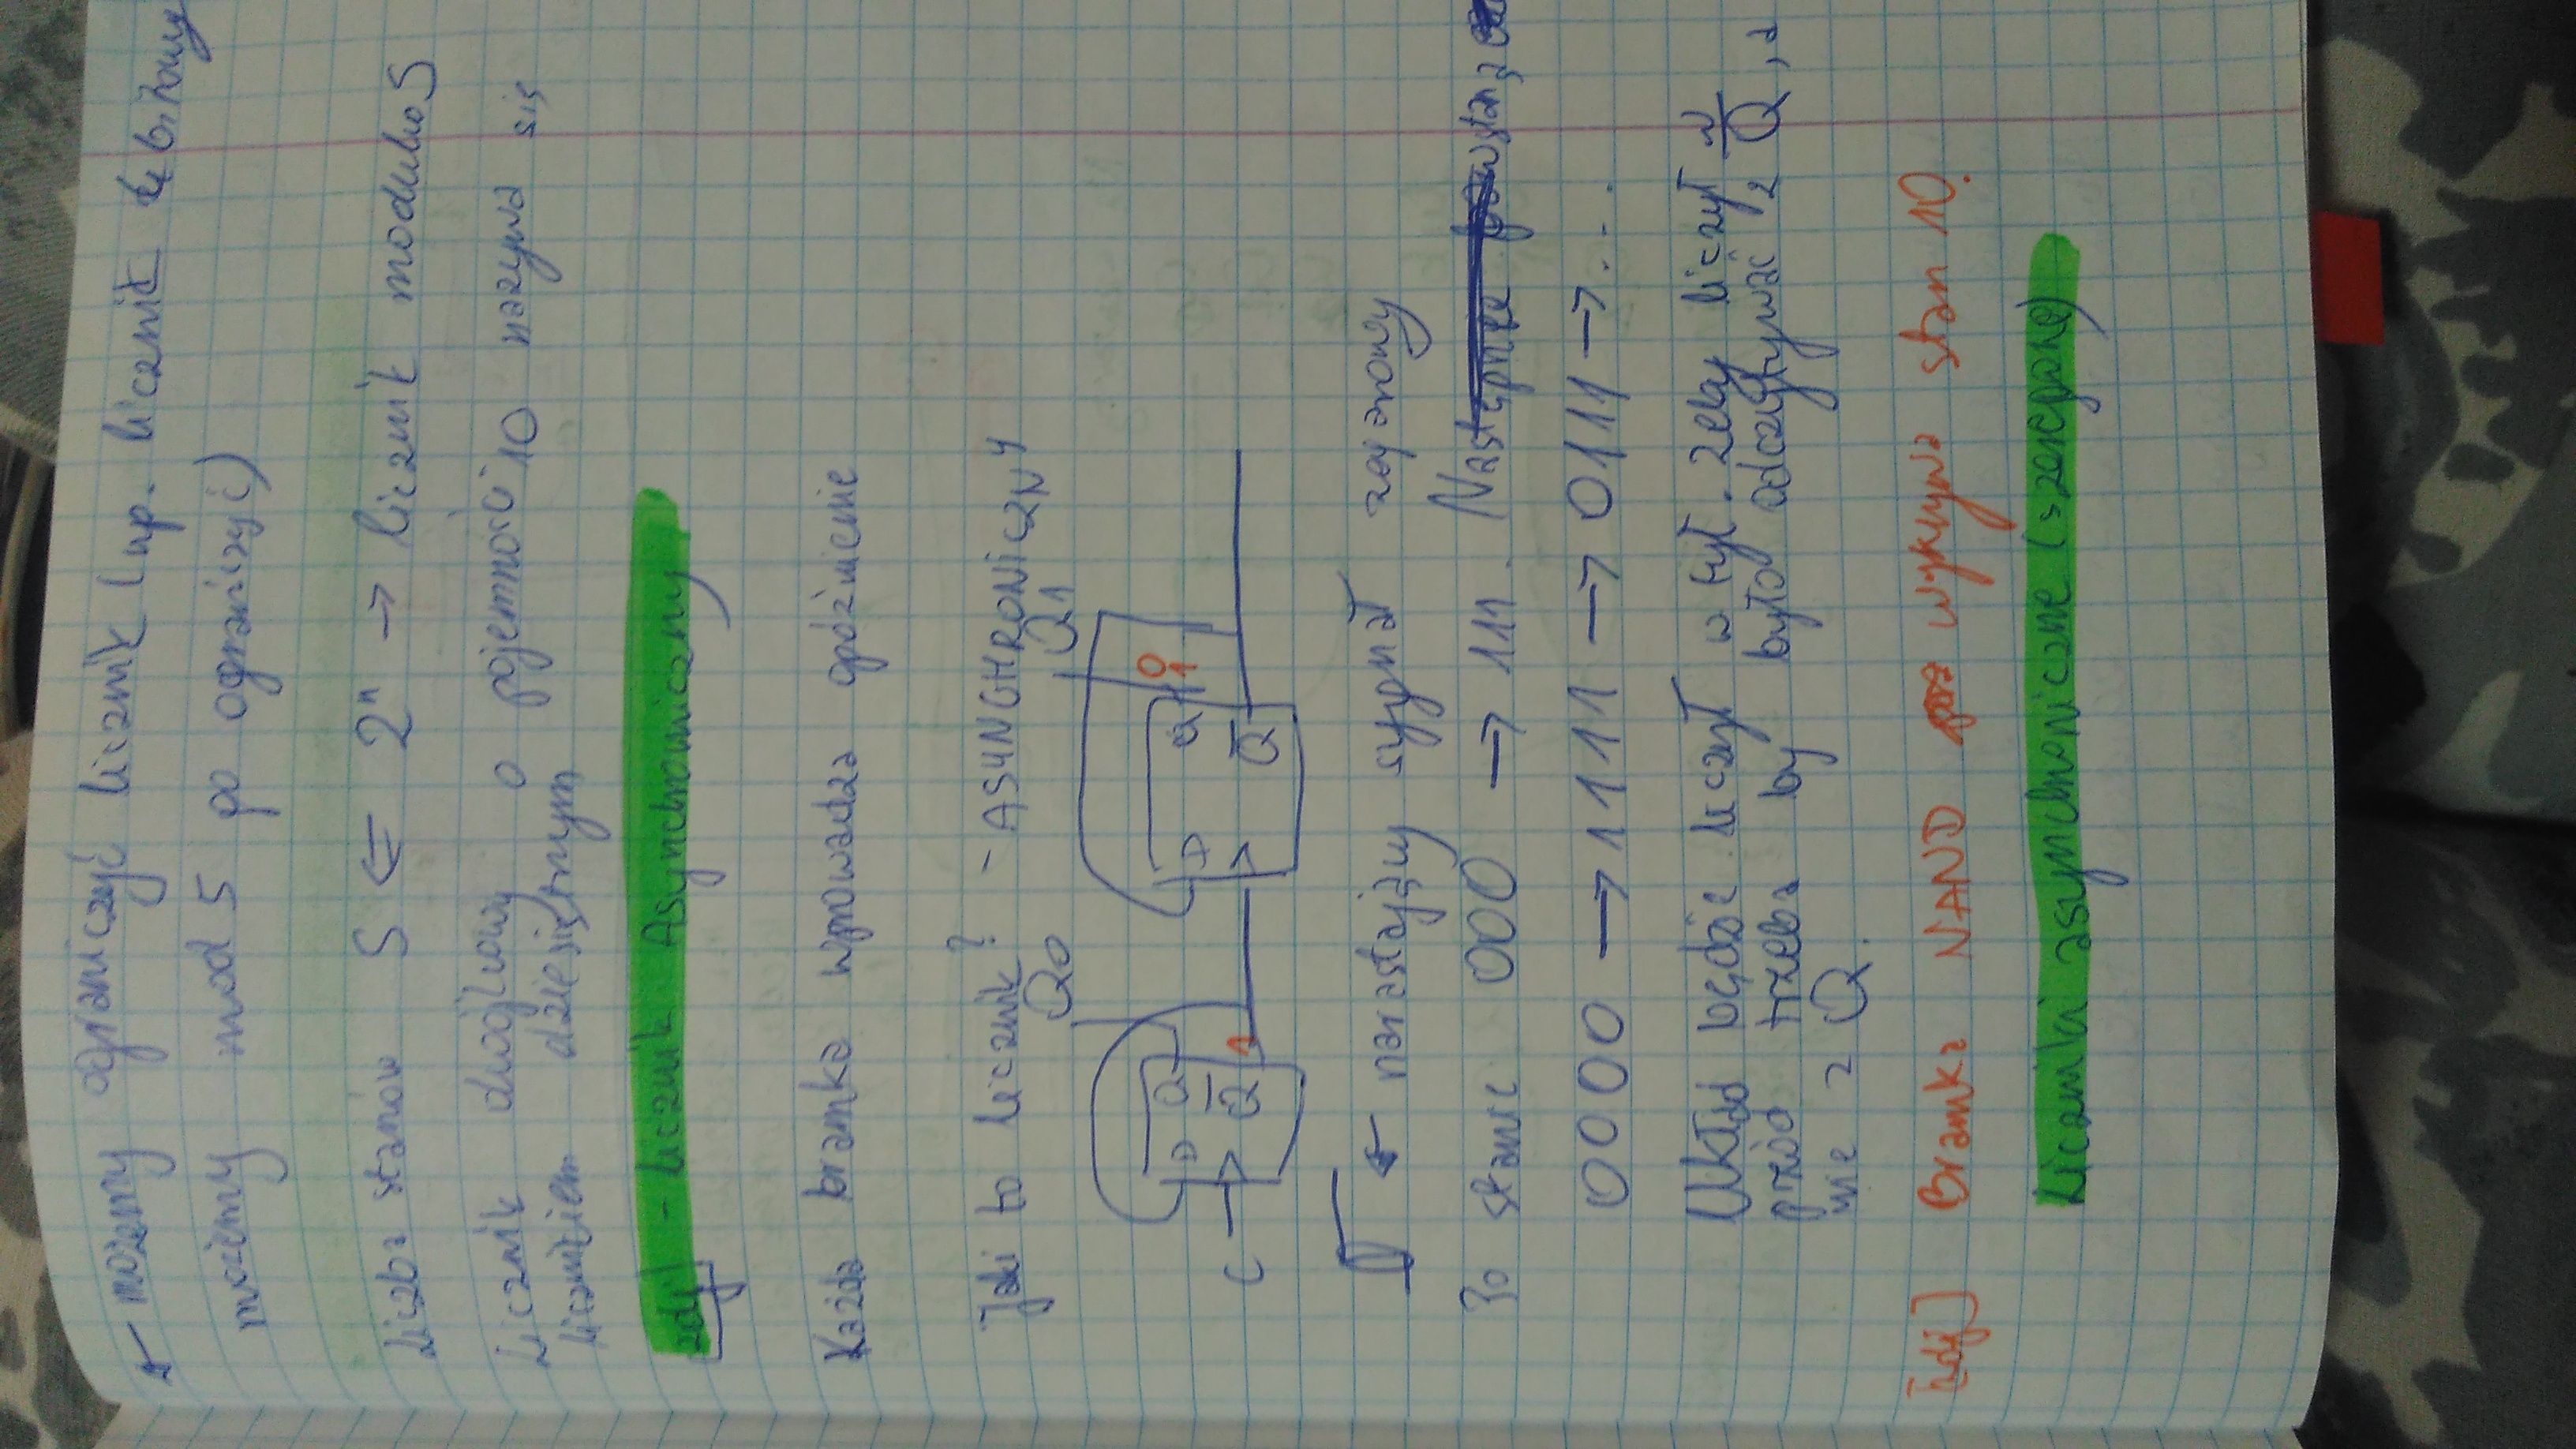 możemy ograniczyć licznik (np. licznik 4 bitowy
możemy mod 5 po ograniczyć)
Liczba stanów S ⇐ 2ⁿ → licznik modulo S
Licznik dwójkowy o pojemności 10 nazywa się
licznikiem dziesiętnym
zdj - Licznik Asynchroniczny
Każda bramka wprowadza opóźnienie
Jaki to licznik? - ASYNCHRONICZNY
Q0 Q1
D Q 1 D Q 0 1
C Q̅ Q̅
← narastający sygnał zegarowy
Po stanie 000 → 111. Następnie
0000 → 1111 → 0111 → . . .
Układ będzie liczył w tył. Żeby liczył w
przód trzeba by było odczytywać z Q̅, a
nie z Q.
[zdj] Bramka NAND wykrywa stan 10.
Liczniki asynchroniczne (szeregowe)